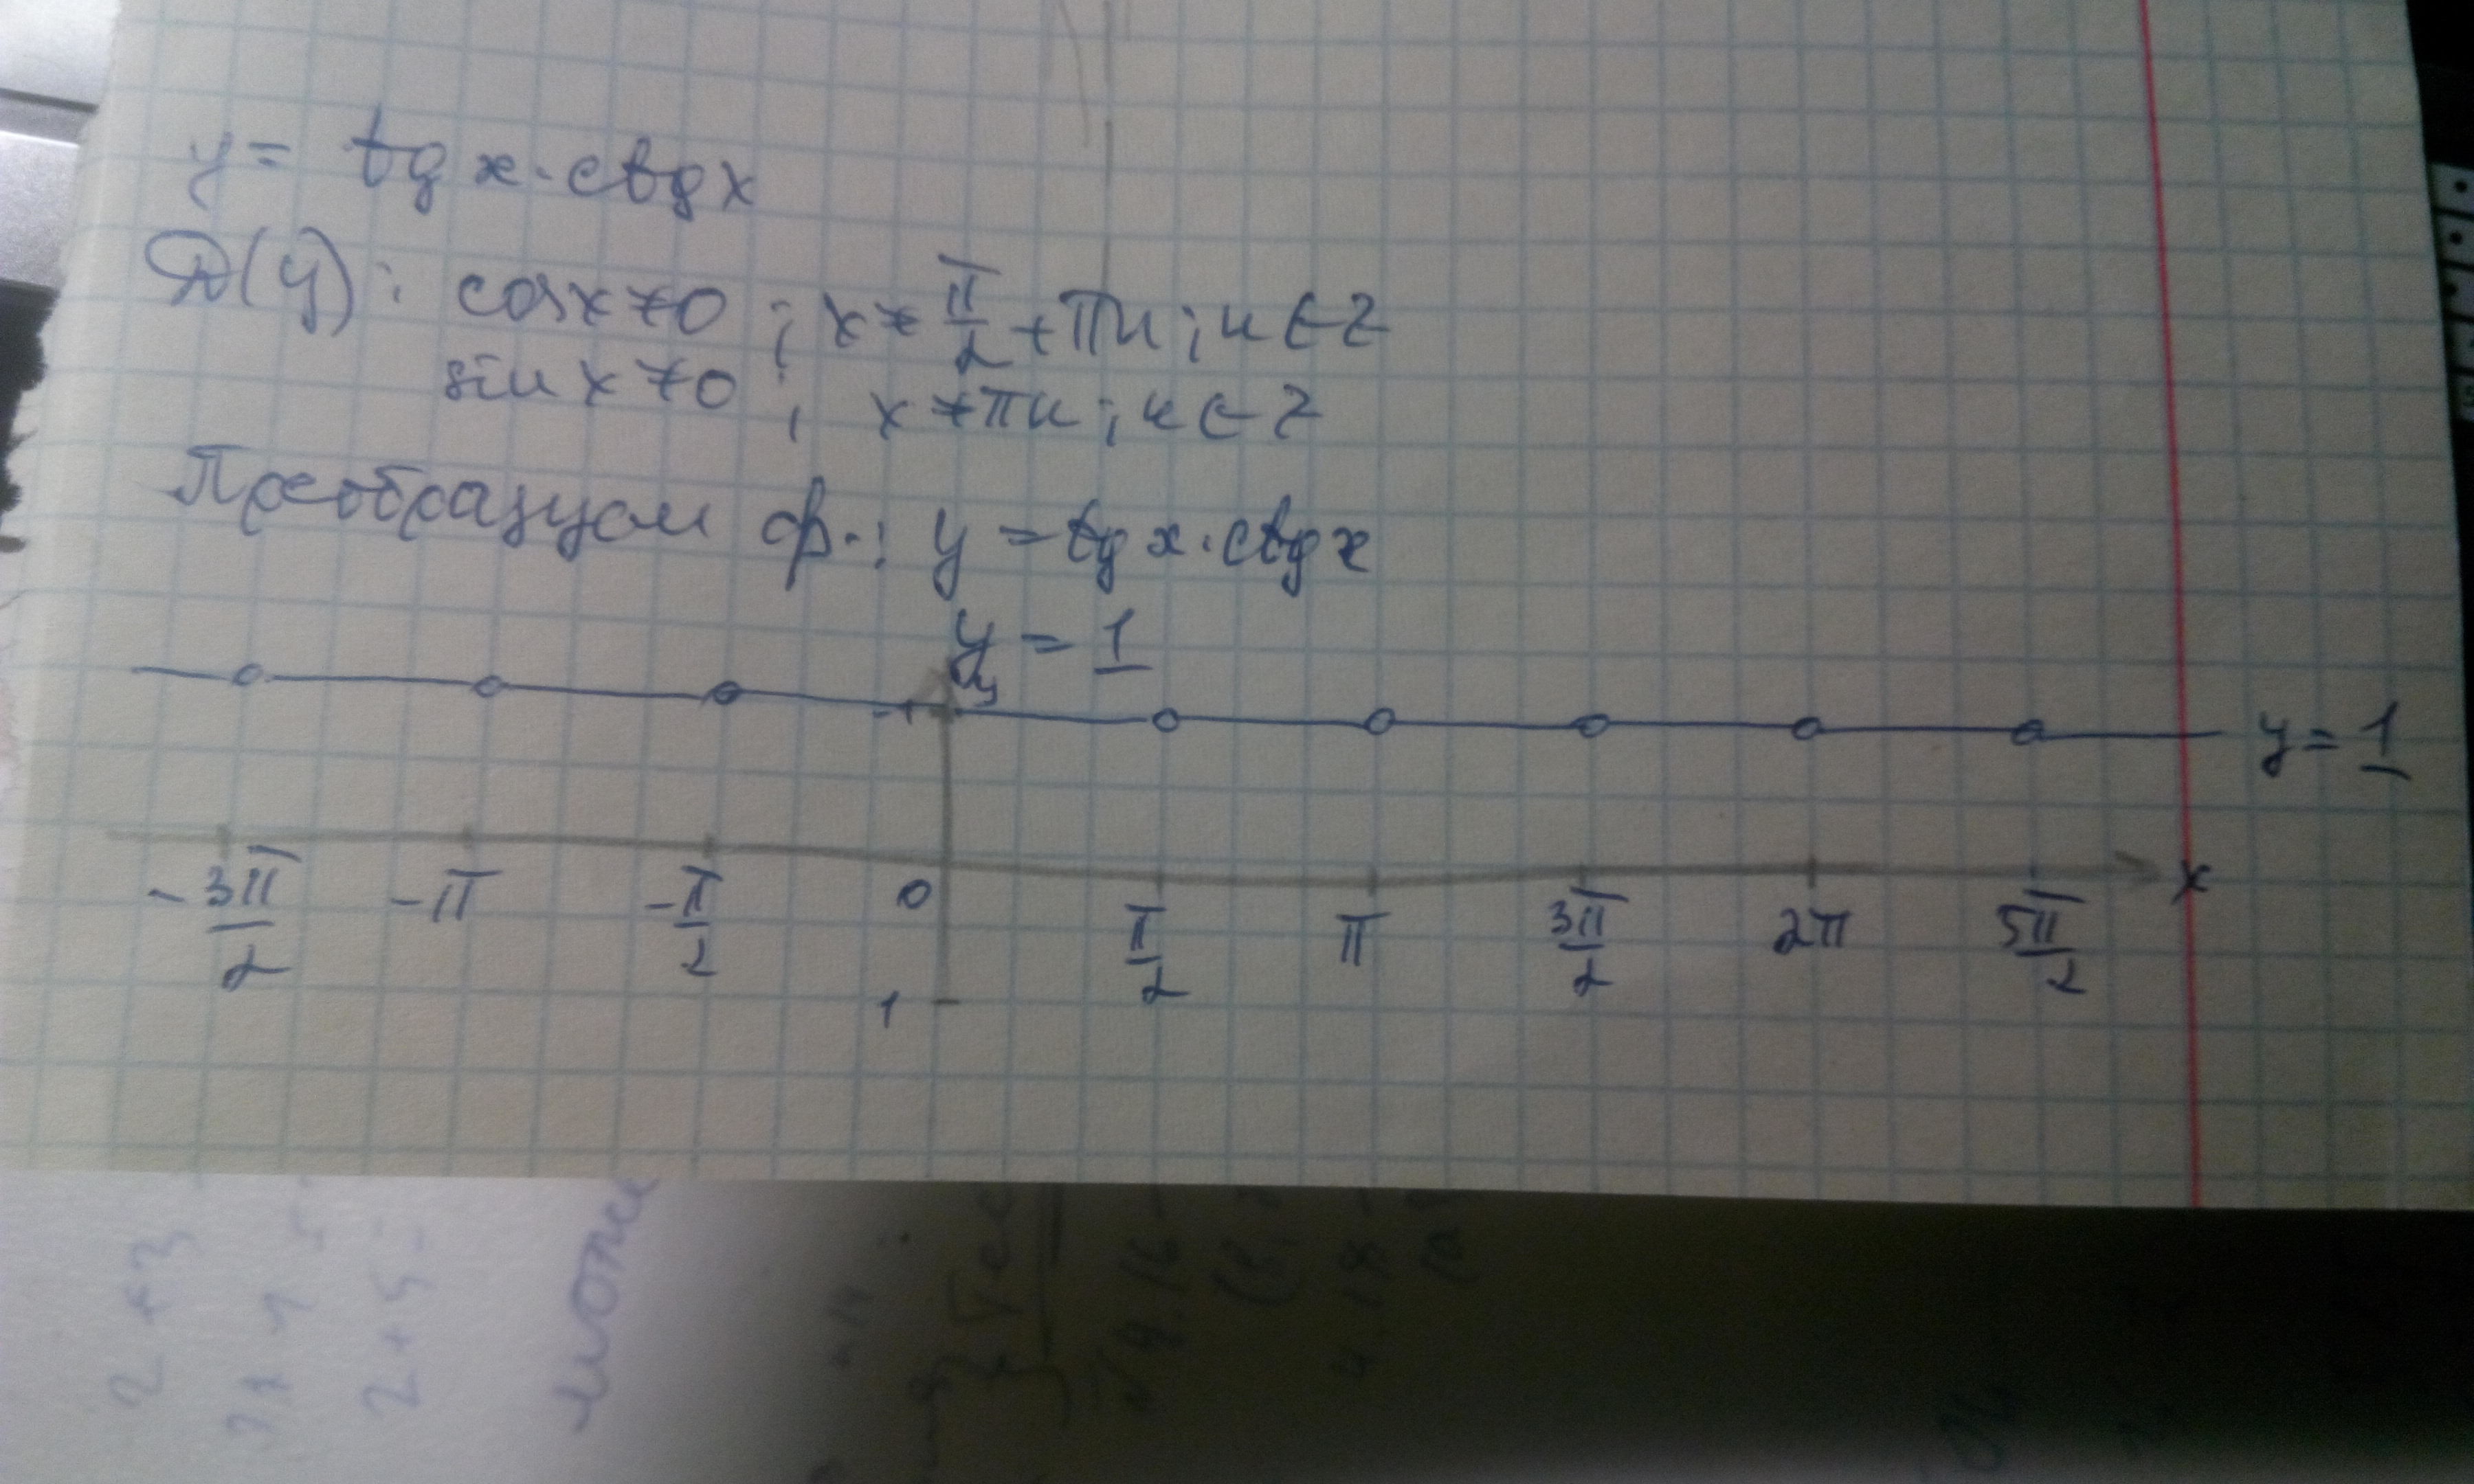 y = tg x · ctg x
D(y): cos x ≠ 0 ; x ≠ π/2 + πn ; n ∈ Z
sin x ≠ 0 ; x ≠ πn ; n ∈ Z
Преобразуем ф.: y = tg x · ctg x
y = 1
y
-1
y = 1
-3π/2 -π -π/2 0 π/2 π 3π/2 2π 5π/2 x
1
2+3
2+5